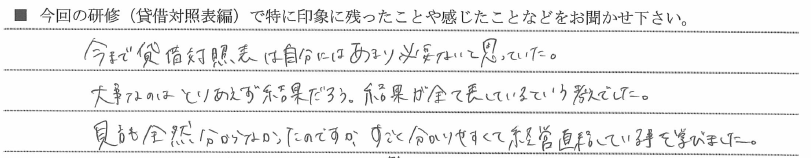 ■ 今回の研修（貸借対照表編）で特に印象に残ったことや感じたことなどをお聞かせ下さい。
今まで貸借対照表は自分にはあまり必要ないと思っていた。
大事なのはとりあえず結果だろう。結果が全て表しているという考えでした。
見ても全然分からなかったのですが、すごく分かりやすくて経営直結している事を学びました。